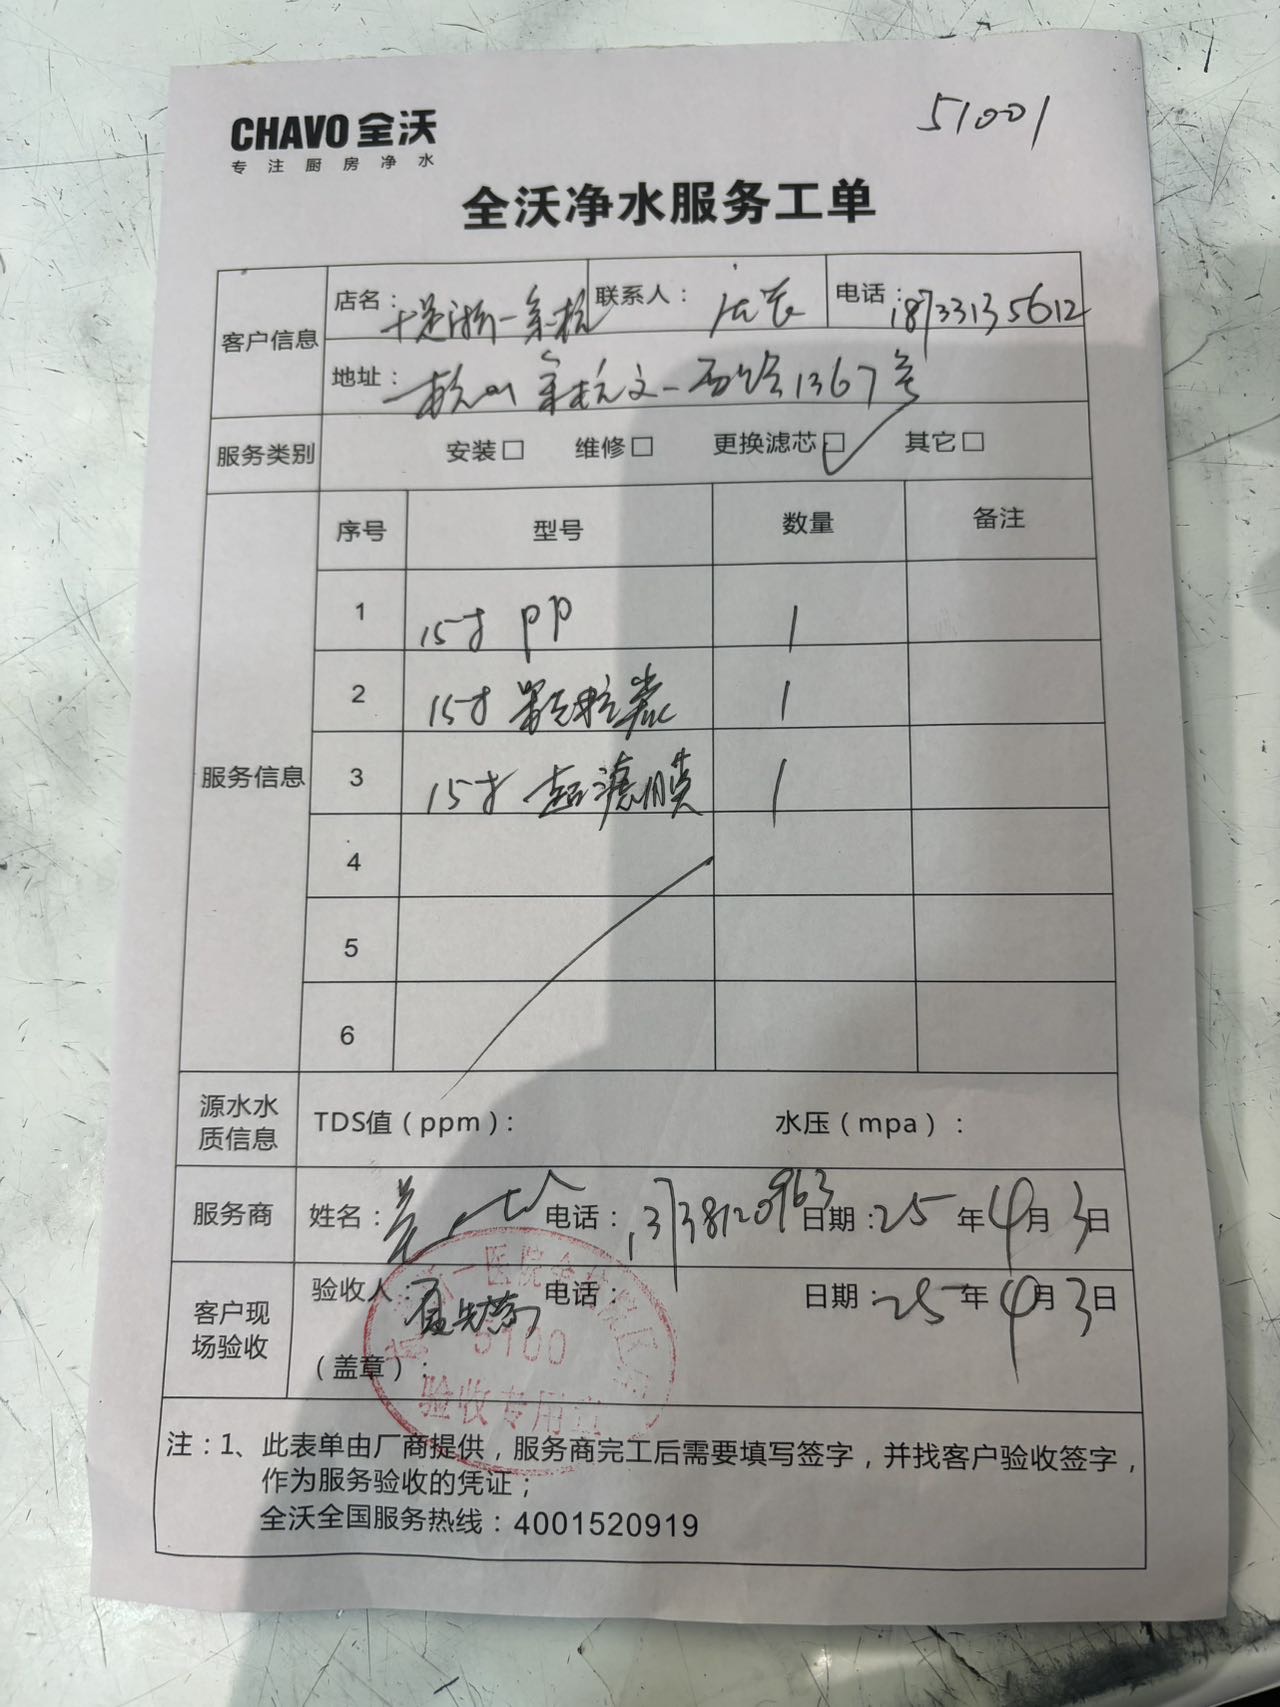 51001
CHAVO 全沃
专注厨房净水
全沃净水服务工单
客户信息 店名：十足浙一余杭 联系人：店长 电话：18733135612
地址：杭州余杭文一西路1367号
服务类别 安装□ 维修□ 更换滤芯☑ 其它□
服务信息 序号 型号 数量 备注
1 15寸 PP 1
2 15寸 颗粒炭 1
3 15寸 超滤膜 1
4
5
6
源水水质信息 TDS值（ppm）： 水压（mpa）：
服务商 姓名： 电话：13738120963 日期：25年4月3日
客户现场验收 验收人： 电话： 日期：25年4月3日
（盖章）：
一医院余杭院区
5100
验收专用章
注：1、此表单由厂商提供，服务商完工后需要填写签字，并找客户验收签字，
作为服务验收的凭证；
全沃全国服务热线：4001520919